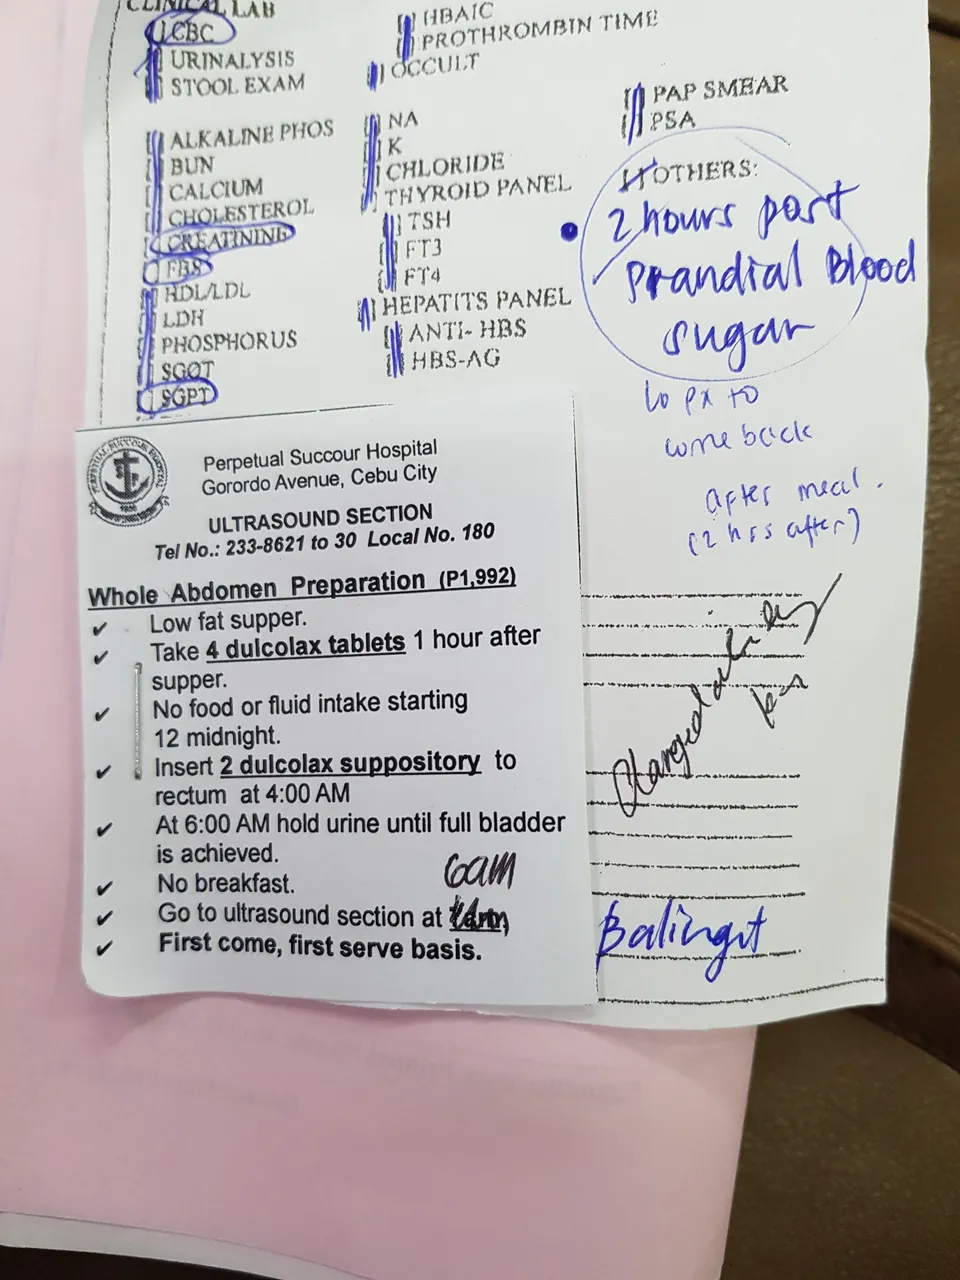 CLINICAL LAB
CBC
URINALYSIS
STOOL EXAM
ALKALINE PHOS
BUN
CALCIUM
CHOLESTEROL
CREATININE
FBS
HDL/LDL
LDH
PHOSPHORUS
SGOT
SGPT
HBAIC
PROTHROMBIN TIME
OCCULT
NA
K
CHLORIDE
THYROID PANEL
TSH
FT3
FT4
HEPATITS PANEL
ANTI- HBS
HBS-AG
PAP SMEAR
PSA
OTHERS:
2 hours post
prandial Blood
sugar
px to
come back
after meal.
(2 hrs after)
Balingit
Perpetual Succour Hospital
Gorordo Avenue, Cebu City
ULTRASOUND SECTION
Tel No.: 233-8621 to 30 Local No. 180
Whole Abdomen Preparation (P1,992)
✔ Low fat supper.
✔ Take 4 dulcolax tablets 1 hour after
supper.
✔ No food or fluid intake starting
12 midnight.
✔ Insert 2 dulcolax suppository to
rectum at 4:00 AM
✔ At 6:00 AM hold urine until full bladder
is achieved.
✔ No breakfast.
6am
✔ Go to ultrasound section at
✔ First come, first serve basis.